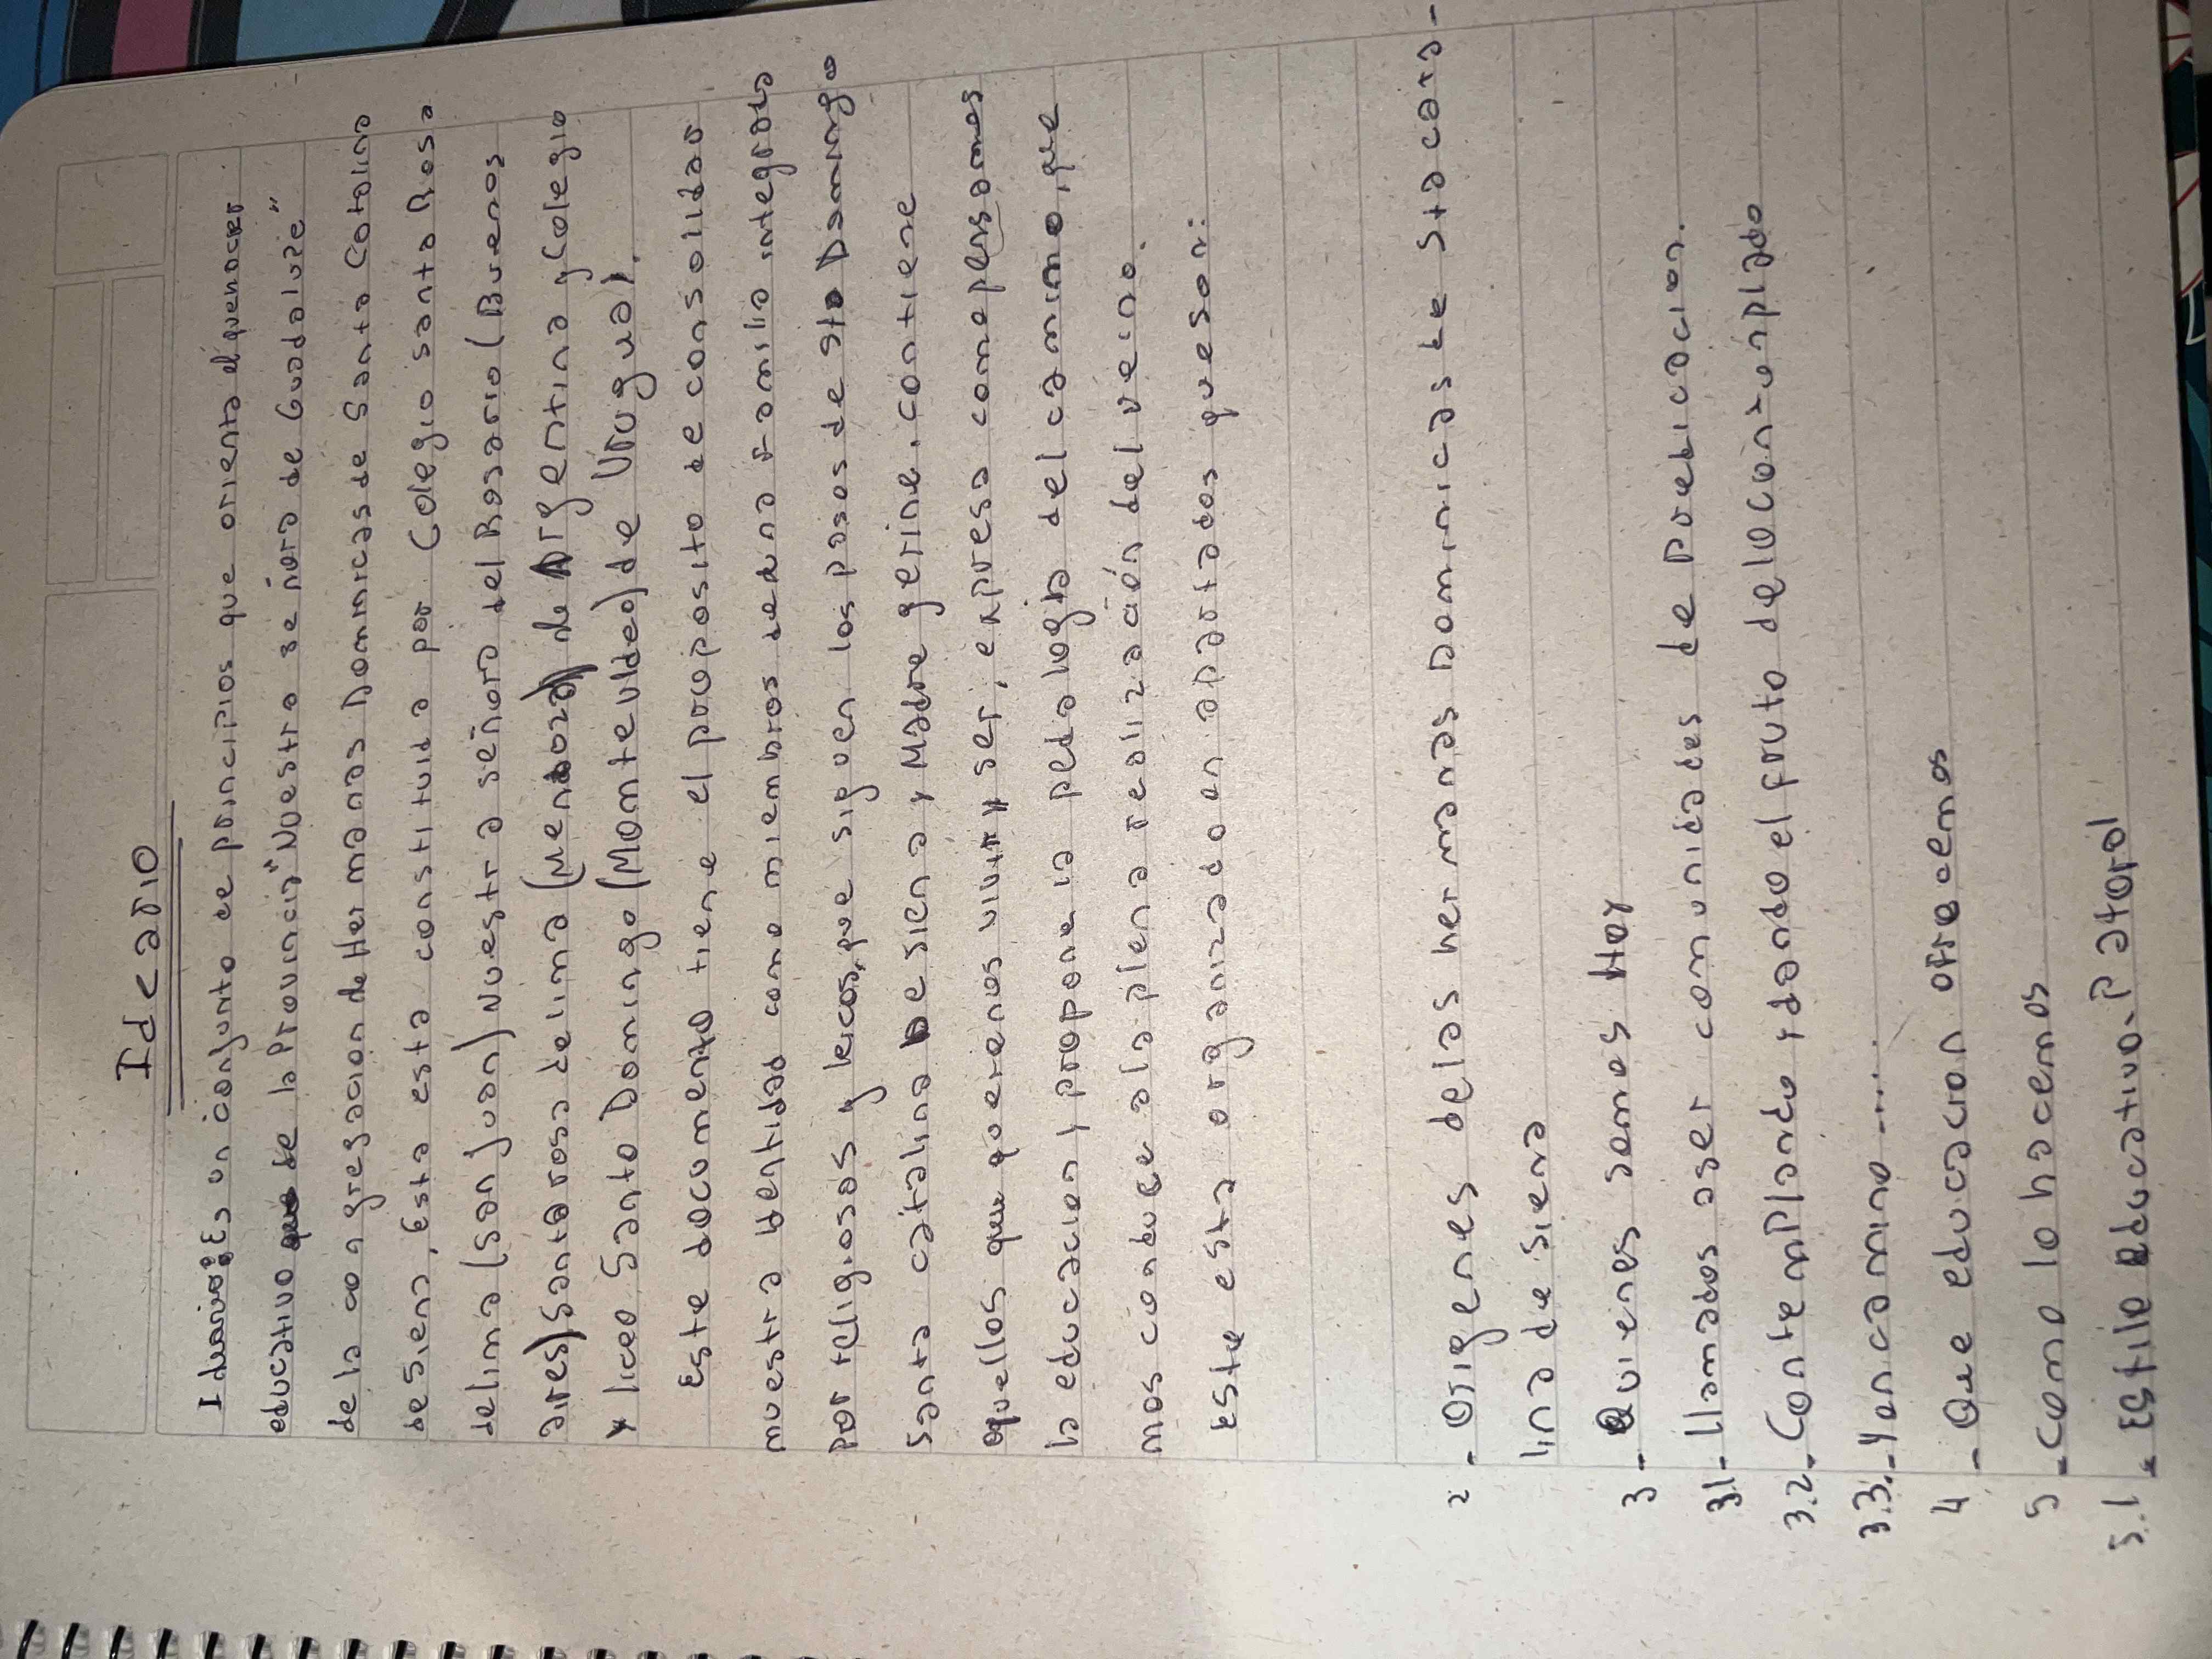 Idcario
Ideario: Es un conjunto de principios que orienta el quehacer
educativo de la Provincia "Nuestra señora de Guadalupe"
de la congregacion de Hermanas Dominicas de Santa Catalina
de siena, Esta esta constituida por Colegio santa Rosa
delima (san juan) Nuestra señora del Rosario (Buenos
aires) Santa rosa de lima (Mendoza) de Argentina y Colegio
y liceo Santo Domingo (Montevideo) de Uruguai.
Este documento tiene el proposito de consolidar
nuestra identidad como miembros de una familia integrada
por religiosas y laicos, que siguen los pasos de sto Domingo
santa catalina de siena y Madre gerine, contiene
aquellos que queremos vivir y ser, expresa como pensamos
la educacion y propone la pedalogia del camino, que
nos conduce a la plena realización del vecino.
Este esta organizado en apartados que son:
2 - Origenes de las hermanas Dominicas de sta cata-
lina de siena
3 - Quienes somos Hoy
3.1 - Llamados a ser comunidades de predicacion.
3.2 - Contemplando y dando el fruto de lo contenplado
3.3 - Y en camino ....
4 - Que educacion ofrecemos
5 - Como lo hacemos
5.1 - Estilo educativo. Patoral